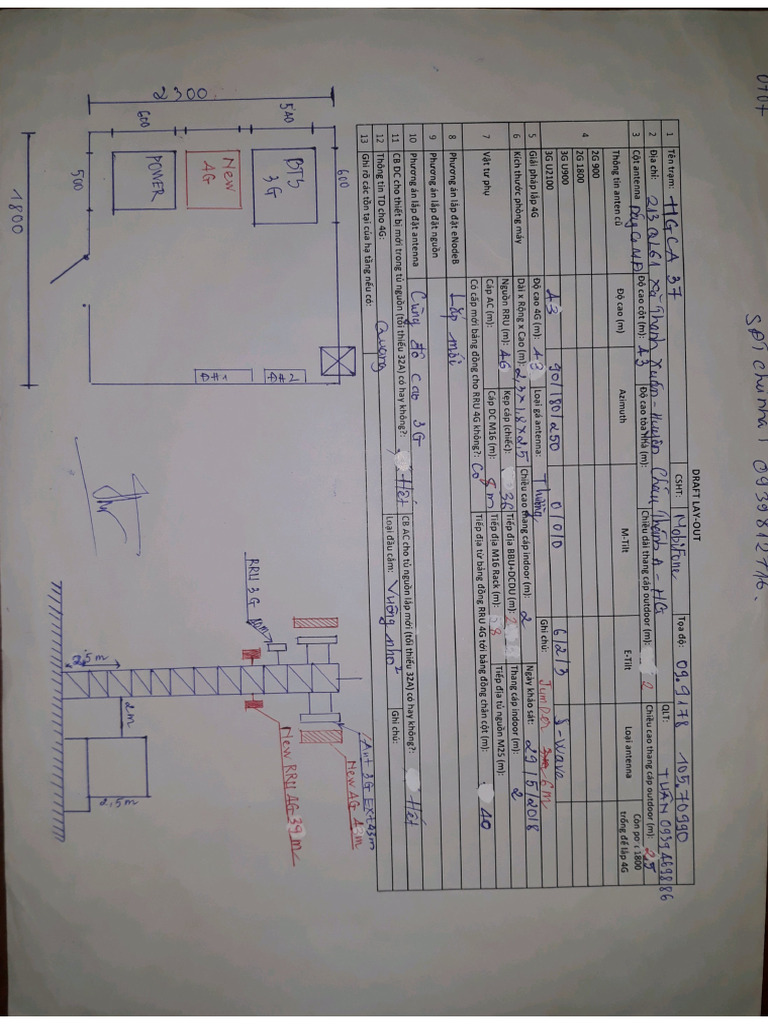 0707
SĐT chu nha 1 0939812716.
DRAFT LAY-OUT
1 Tên trạm: HGCA 37 CSHT: MobiFone Tọa độ: 09.9178 105.70990
2 Địa chỉ: 213 QL61 xã Thạnh Xuân - Huyện Châu Thành A - HG QLT: TUẤN 0939469886
3 Cột antenna Dây Co MĐ Độ cao cột (m): 43 Độ cao tòa nhà (m): Chiều dài thang cáp outdoor (m): 2 Chiều cao thang cáp outdoor (m): 2,5
4 Thông tin anten cũ Độ cao (m) Azimuth M-Tilt E-Tilt Loại antenna Còn port 1800 trống để lắp 4G
2G 900
2G 1800
3G U900
3G U2100 43 90/180/250 0/0/0 6/2/3 8-wave
5 Giải pháp lắp 4G Độ cao 4G (m): 43 Loại gá antenna: Thường Ghi chú: Jumper 6m
6 Kích thước phòng máy Dài x Rộng x Cao (m): 2,3 x 1,8 x 2,5 Chiều cao thang cáp indoor (m): 2 Ngày khảo sát: 29/5/2018
7 Vật tư phụ Nguồn RRU (m): 46 Kẹp cáp (chiếc): 36 Tiếp địa BBU+DCDU (m): Thang cáp indoor (m): 2
Cáp AC (m): Cáp DC M16 (m): 8m Tiếp địa M16 Rack (m): 8 Tiếp địa tủ nguồn M25 (m):
Có cấp mới bảng đồng cho RRU 4G không?: Có Tiếp địa từ bảng đồng RRU 4G tới bảng đồng chân cột (m): 40
8 Phương án lắp đặt eNodeB Lắp mới
9 Phương án lắp đặt nguồn
10 Phương án lắp đặt antenna Cùng độ cao 3G
11 CB DC cho thiết bị mới trong tủ nguồn (tối thiểu 32A) có hay không?: Hết CB AC cho tủ nguồn lắp mới (tối thiểu 32A) có hay không?: Hết
12 Thông tin TD cho 4G: Quang Loại đầu cắm: Vuông nhỏ Ghi chú:
13 Ghi rõ các tồn tại của hạ tầng nếu có:
2300
600
540
600
500
1800
POWER
New 4G
BTS 3G
ĐH1
ĐH2
RRU 3G
Ant 3G Ext 43m
New 4G 43m
New RRU 4G 39m
2,5m
2m
2,5m